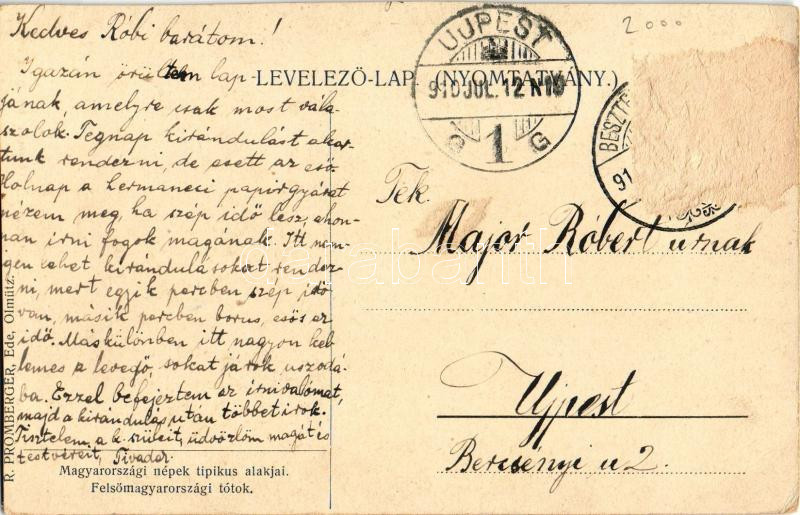 Kedves Róbi barátom!
Igazán örültem lap-
jának, amelyre csak most vála-
szolok. Tegnap kirándulást akar-
tunk rendezni, de esett az eső.
Holnap a hermaneci papírgyárat
nézem meg, ha szép idő lesz, ahon-
nan írni fogok magának. Itt nem
igen lehet kirándulásokat rendez-
ni, mert egyik percben szép idő
van, másik percben borus, esős az
idő. Máskülönben itt nagyon kel-
lemes a levegő, sokat járok uszodá-
ba. Ezzel befejeztem az irnivalómat,
majd a kirándulás után többet irok.
Tisztelem a k. szüleit, üdvözlöm magát és
testvéreit, Tivadar.
LEVELEZŐ-LAP. (NYOMTATVÁNY.)
UJPEST
910 JUL. 12 N10
G 1 G
2000
BESZTE
91
Tek.
Major Róbert urnak
Ujpest
Bercsényi u 2.
R. PROMBERGER, Ede, Olmütz.
Magyarországi népek tipikus alakjai.
Felsőmagyarországi tótok.
darabanth